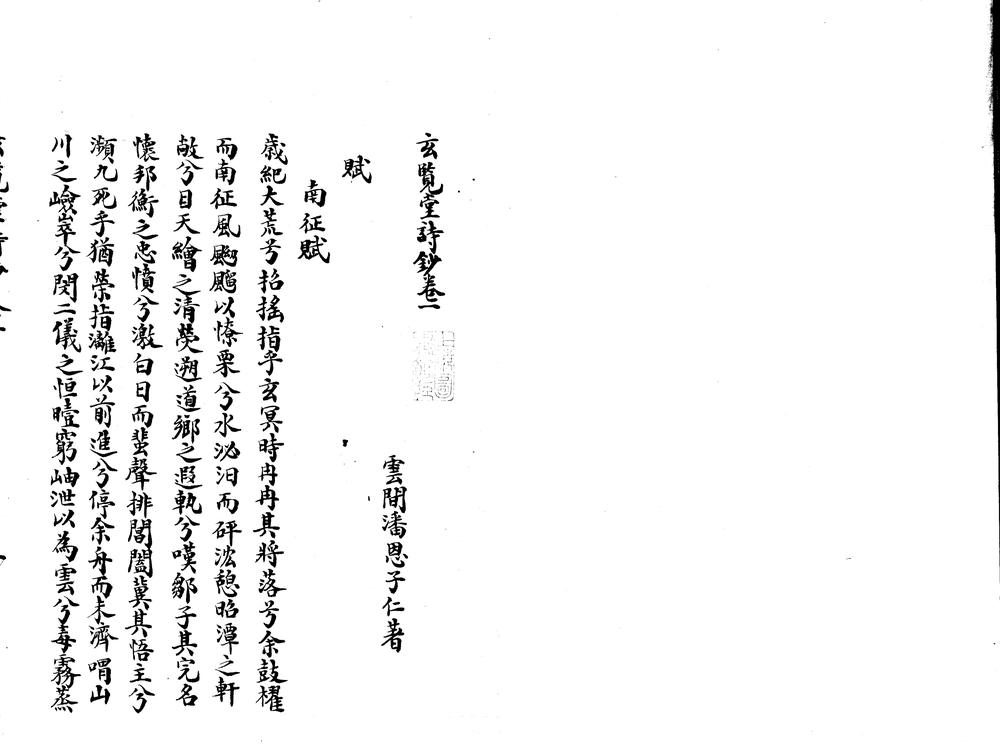 玄覽堂詩鈔卷一
雲間潘恩子仁著
賦
南征賦
歲紀大荒兮招搖指乎玄冥時冉冉其將落兮余鼓櫂
而南征風颲飀以憭栗兮水泌汩而砰浤憩昭潭之軒
敞兮目天繪之清熒遡道鄉之遐軌兮嘆鄒子其完名
懷邦衡之忠憤兮激白日而蜚聲排閶闔冀其悟主兮
瀕九死乎猶榮指灕江以前進兮停余舟而未濟喟山
川之嶮崒兮閔二儀之恒曀窮岫泄以為雲兮毒霧蒸